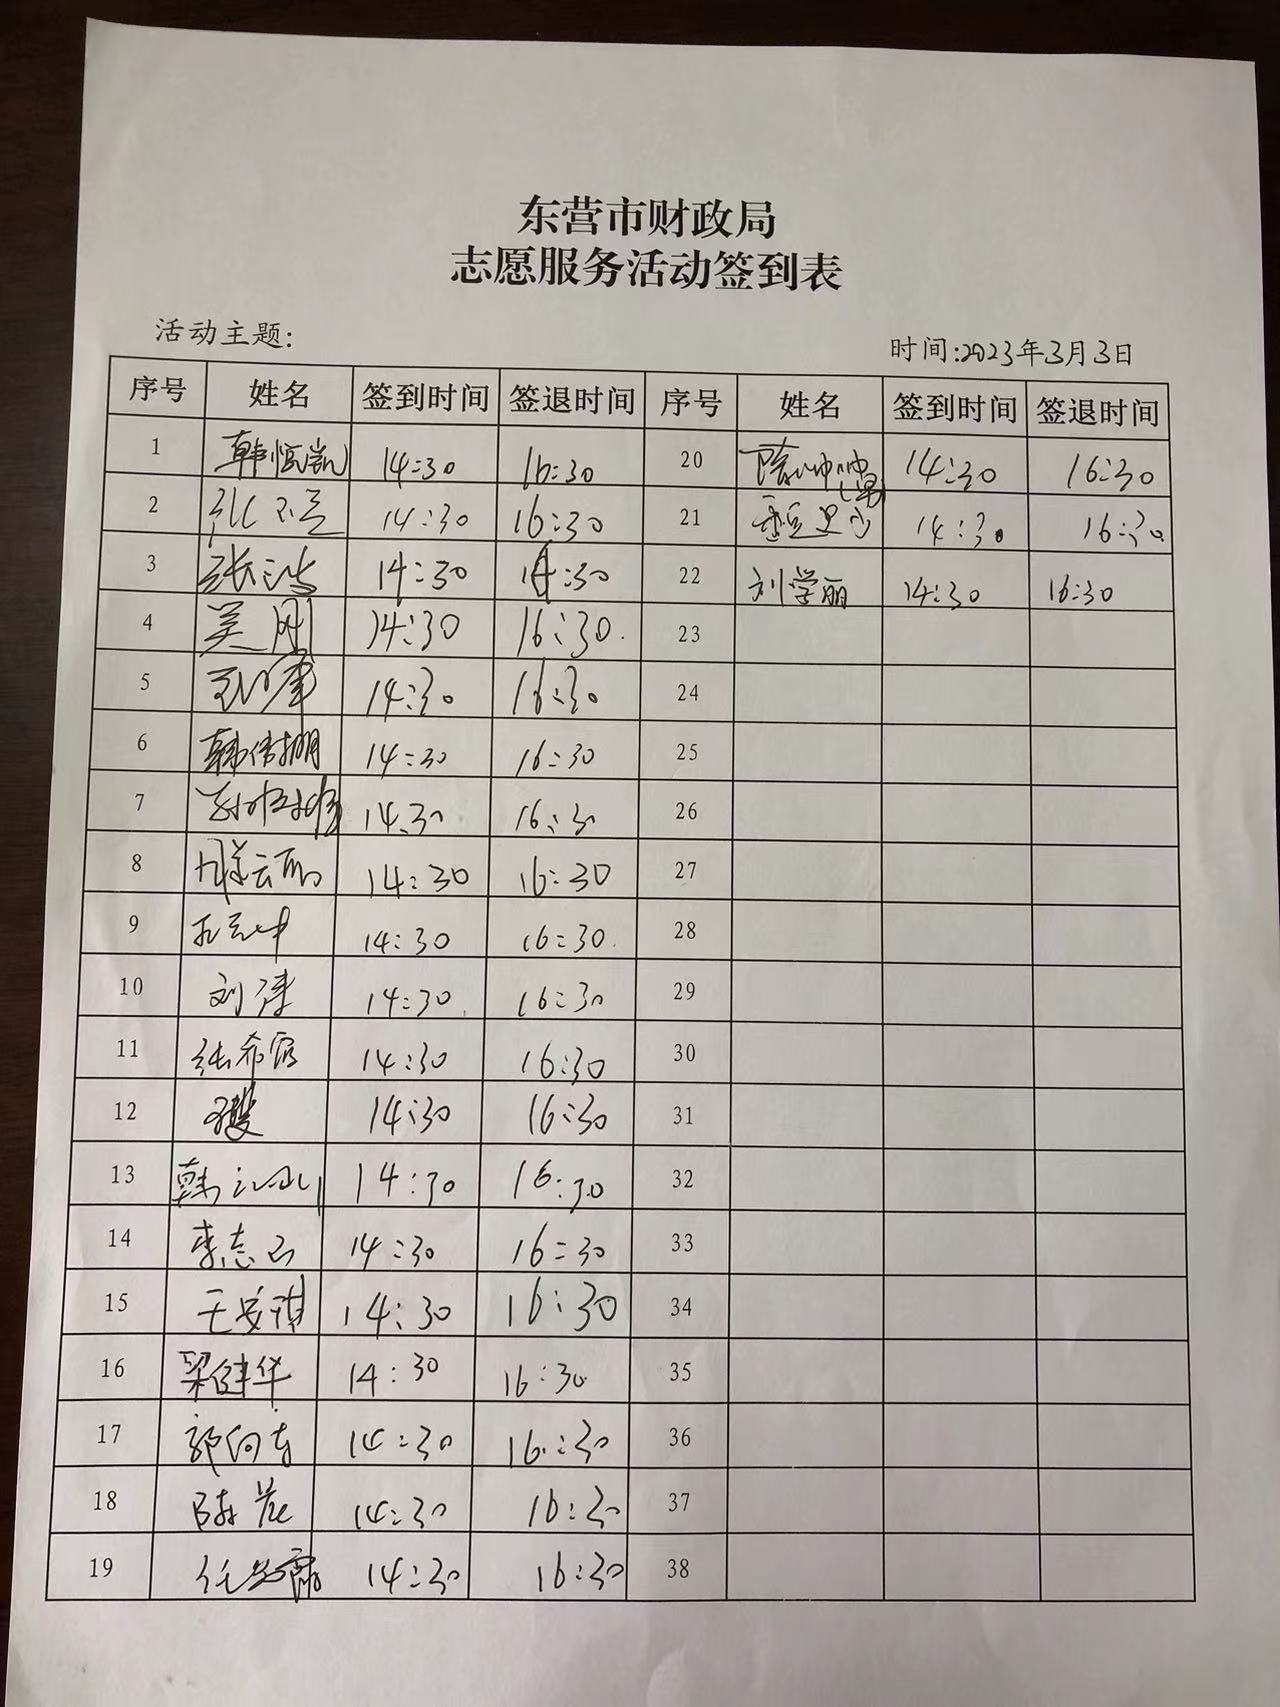 东营市财政局
志愿服务活动签到表
活动主题:
时间:2023年3月3日
序号 姓名 签到时间 签退时间 序号 姓名 签到时间 签退时间
1 14:30 16:30 20 14:30 16:30
2 14:30 16:30 21 14:30 16:30
3 14:30 22 刘学丽 14:30 16:30
4 吴刚 14:30 16:30 23
5 14:30 16:30 24
6 韩伟明 14:30 16:30 25
7 14:30 16:30 26
8 14:30 16:30 27
9 14:30 16:30 28
10 14:30 16:30 29
11 张希霞 14:30 16:30 30
12 14:30 16:30 31
13 14:30 16:30 32
14 李志云 14:30 16:30 33
15 王安琪 14:30 16:30 34
16 梁健华 14:30 16:30 35
17 郭向东 14:30 16:30 36
18 14:30 16:30 37
19 14:30 16:30 38